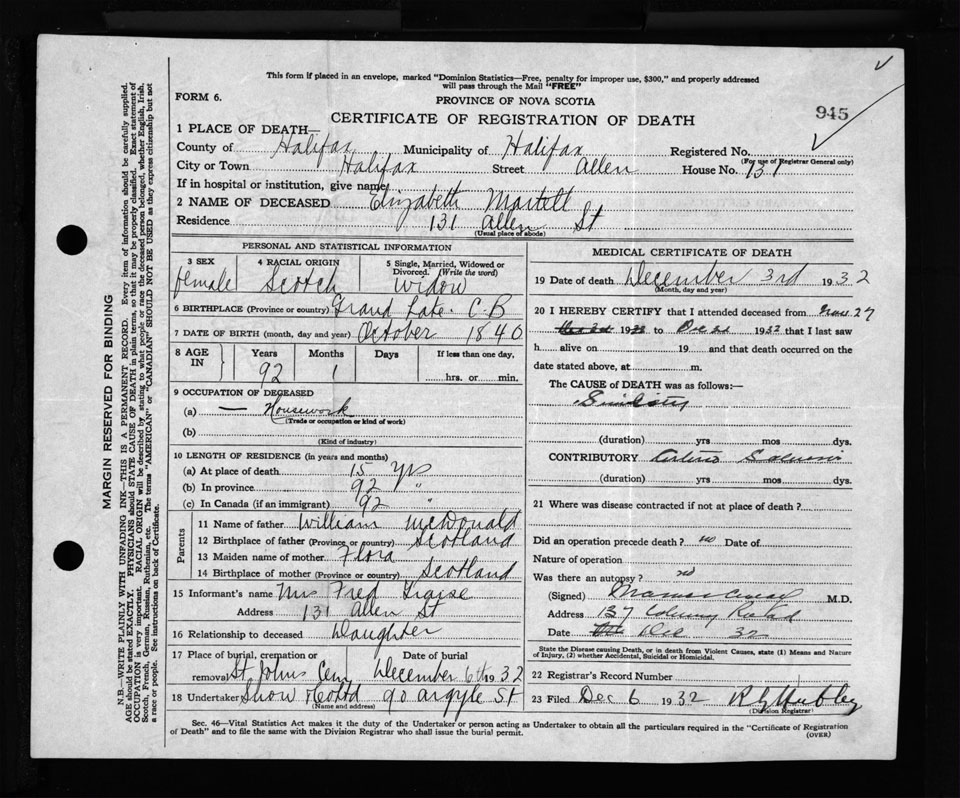 This form if placed in an envelope, marked "Dominion Statistics—Free, penalty for improper use, $300," and properly addressed
will pass through the Mail "FREE"
FORM 6.
PROVINCE OF NOVA SCOTIA
945
CERTIFICATE OF REGISTRATION OF DEATH
1 PLACE OF DEATH—
County of Halifax Municipality of Halifax Registered No.
(For use of Registrar General only)
City or Town Halifax Street Allen House No. 131
If in hospital or institution, give name
2 NAME OF DECEASED Elizabeth Martell
Residence 131 Allen St
(Usual place of abode)
PERSONAL AND STATISTICAL INFORMATION
3 SEX
female
4 RACIAL ORIGIN
Scotch
5 Single, Married, Widowed or
Divorced. (Write the word)
Widow
6 BIRTHPLACE (Province or country) Grand C.B
7 DATE OF BIRTH (month, day and year) October 1840
8 AGE IN
Years Months Days If less than one day,
92 1 hrs. or min.
9 OCCUPATION OF DECEASED
(a) — Housework
(Trade or occupation or kind of work)
(b)
(Kind of industry)
10 LENGTH OF RESIDENCE (in years and months)
(a) At place of death 15 yrs
(b) In province 92 "
(c) In Canada (if an immigrant) 92 "
Parents
11 Name of father William McDonald
12 Birthplace of father (Province or country) Scotland
13 Maiden name of mother Flora
14 Birthplace of mother (Province or country) Scotland
15 Informant's name Mrs Fred
Address 131 Allen St
16 Relationship to deceased Daughter
17 Place of burial, cremation or Date of burial
removal St Johns Cem December 6th 1932
18 Undertaker Snow & Co Ltd 90 Argyle St
(Name and address)
MEDICAL CERTIFICATE OF DEATH
19 Date of death December 3rd 1932
(Month, day and year)
20 I HEREBY CERTIFY that I attended deceased from 27
19 to 1932 that I last saw
h alive on 19 and that death occurred on the
date stated above, at m.
The CAUSE of DEATH was as follows:—
Senility
(duration) yrs mos dys.
CONTRIBUTORY
(duration) yrs mos dys.
21 Where was disease contracted if not at place of death?
Did an operation precede death? no Date of
Nature of operation
Was there an autopsy? no
(Signed) M.D.
Address 137
Date Dec 32
State the Disease causing Death, or in death from Violent Causes, state (1) Means and
Nature of Injury, (2) whether Accidental, Suicidal or Homicidal.
22 Registrar's Record Number
23 Filed Dec 6 1932
(Division Registrar)
Sec. 46—Vital Statistics Act makes it the duty of the Undertaker or person acting as Undertaker to obtain all the particulars required in the "Certificate of Registration
of Death" and to file the same with the Division Registrar who shall issue the burial permit.
(OVER)
MARGIN RESERVED FOR BINDING
N.B.—WRITE PLAINLY WITH UNFADING INK—THIS IS A PERMANENT RECORD. Every item of information should be carefully supplied.
AGE should be stated EXACTLY. PHYSICIANS should STATE CAUSE OF DEATH in plain terms, so that it may be properly classified. Exact statement of
OCCUPATION is very important. RACIAL ORIGIN will be described by stating to what people or race the deceased person belonged, whether English, Irish,
Scotch, French, German, Russian, Ruthenian, etc. The terms "AMERICAN" or "CANADIAN" SHOULD NOT BE USED as they express citizenship but not
a race or people. See instructions on back of Certificate.